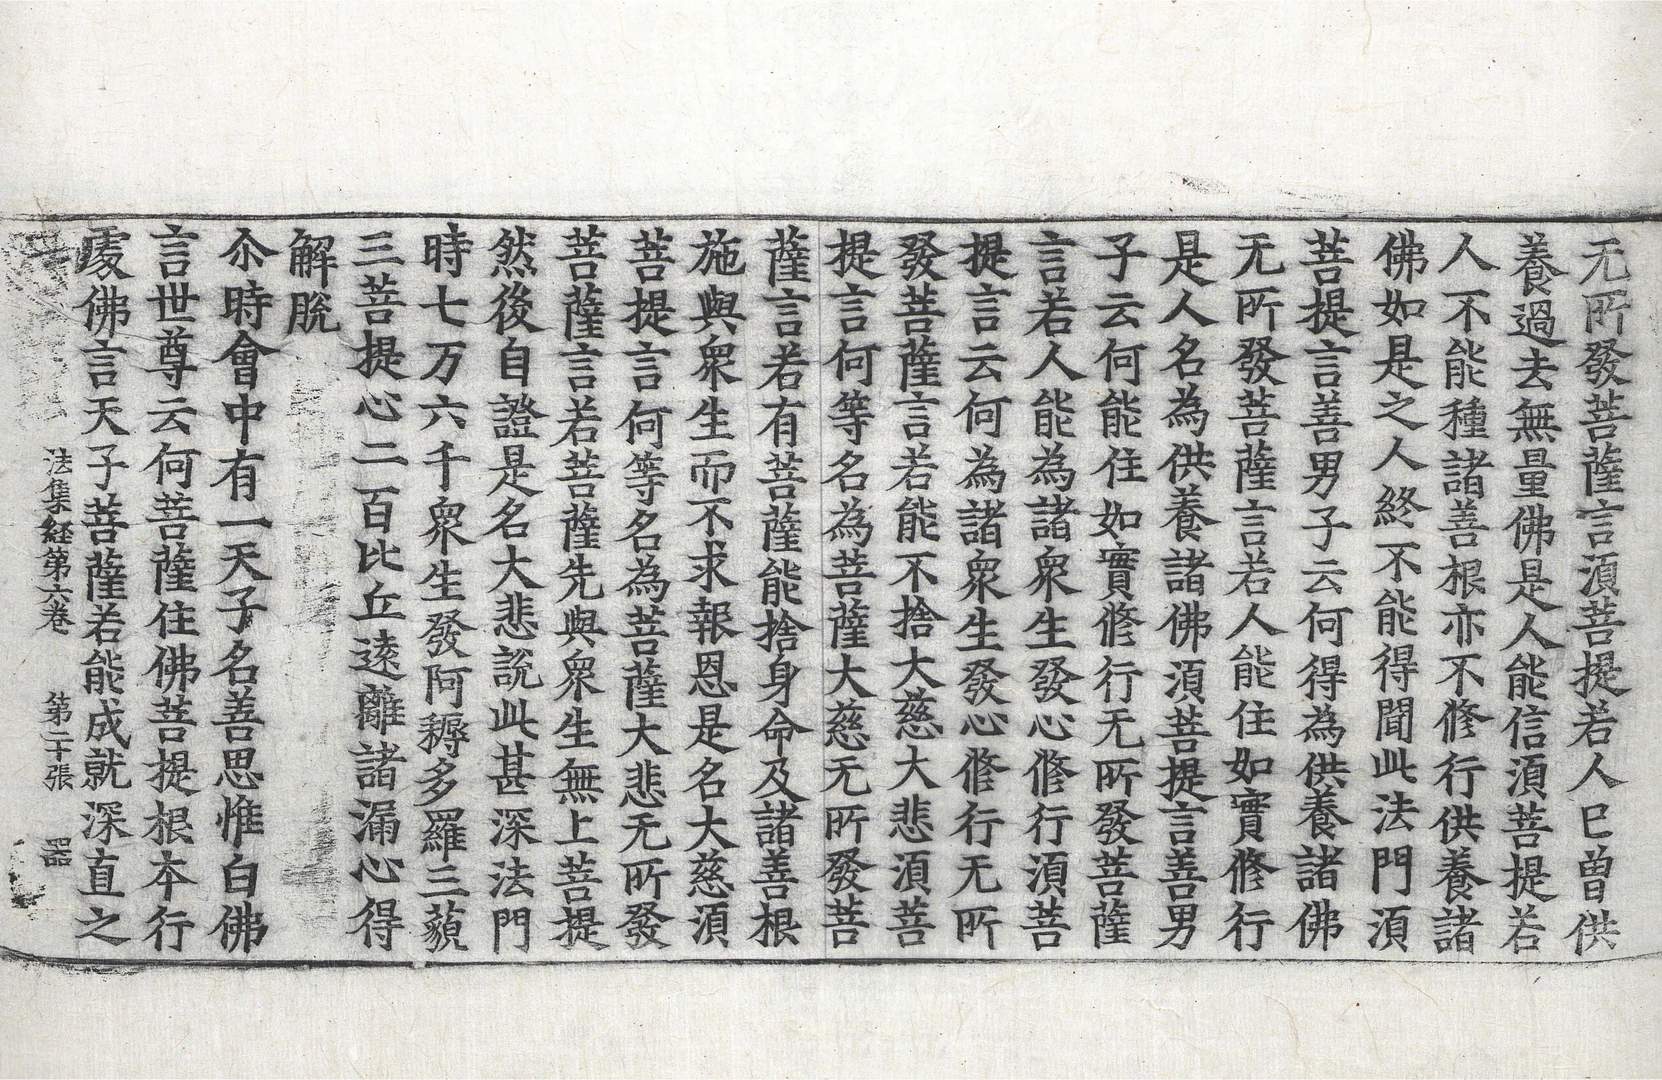 无所發菩薩言須菩提若人已曾供
養過去無量佛是人能信須菩提若
人不能種諸善根亦不修行供養諸
佛如是之人終不能得聞此法門須
菩提言善男子云何得為供養諸佛
无所發菩薩言若人能住如實修行
是人名為供養諸佛須菩提言善男
子云何能住如實修行无所發菩薩
言若人能為諸衆生發心修行須菩
提言云何為諸衆生發心修行无所
發菩薩言若能不捨大慈大悲須菩
提言何等名為菩薩大慈无所發菩
薩言若有菩薩能捨身命及諸善根
施與衆生而不求報恩是名大慈須
菩提言何等名為菩薩大悲无所發
菩薩言若菩薩先與衆生無上菩提
然後自證是名大悲說此甚深法門
時七万六千衆生發阿耨多羅三藐
三菩提心二百比丘遠離諸漏心得
解脫
尒時會中有一天子名善思惟白佛
言世尊云何菩薩住佛菩提根本行
處佛言天子菩薩若能成就深直之
法集経第六卷 第二十張 器